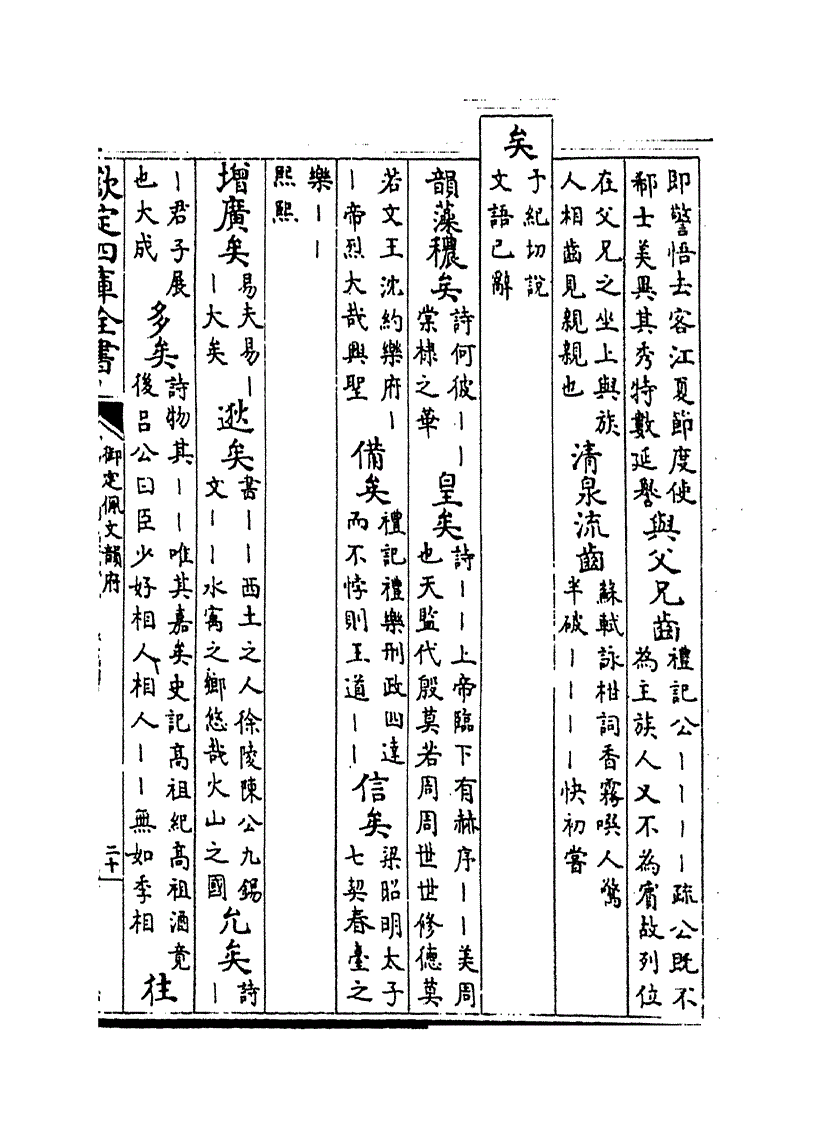 即警悟去客江夏節度使
郗士美異其秀特數延譽
與父兄齒
禮記公丨丨丨丨疏公既不
為主族人又不為賓故列位
在父兄之坐上與族
人相齒見親親也
清泉流齒
蘇軾詠柑詞香霧噀人驚
半破丨丨丨丨快初嘗
矣
于紀切說
文語已辭
韻藻穠矣
詩何彼丨丨
棠棣之華
皇矣
詩丨丨上帝臨下有赫序丨丨美周
也天監代殷莫若周周世世修德莫
若文王沈約樂府丨
丨帝烈大哉興聖
備矣
禮記禮樂刑政四達
而不悖則王道丨丨
信矣
梁昭明太子
七契春臺之
樂丨丨
熙熙
增廣矣
易夫易丨
丨大矣
逖矣
書丨丨西土之人徐陵陳公九錫
文丨丨水寓之鄉悠哉火山之國
允矣
詩
丨
丨君子展
也大成
多矣
詩物其丨丨唯其嘉矣史記高祖紀高祖酒竟
後呂公曰臣少好相人相人丨丨無如季相
往
欽定四庫全書
御定佩文韻府
二十